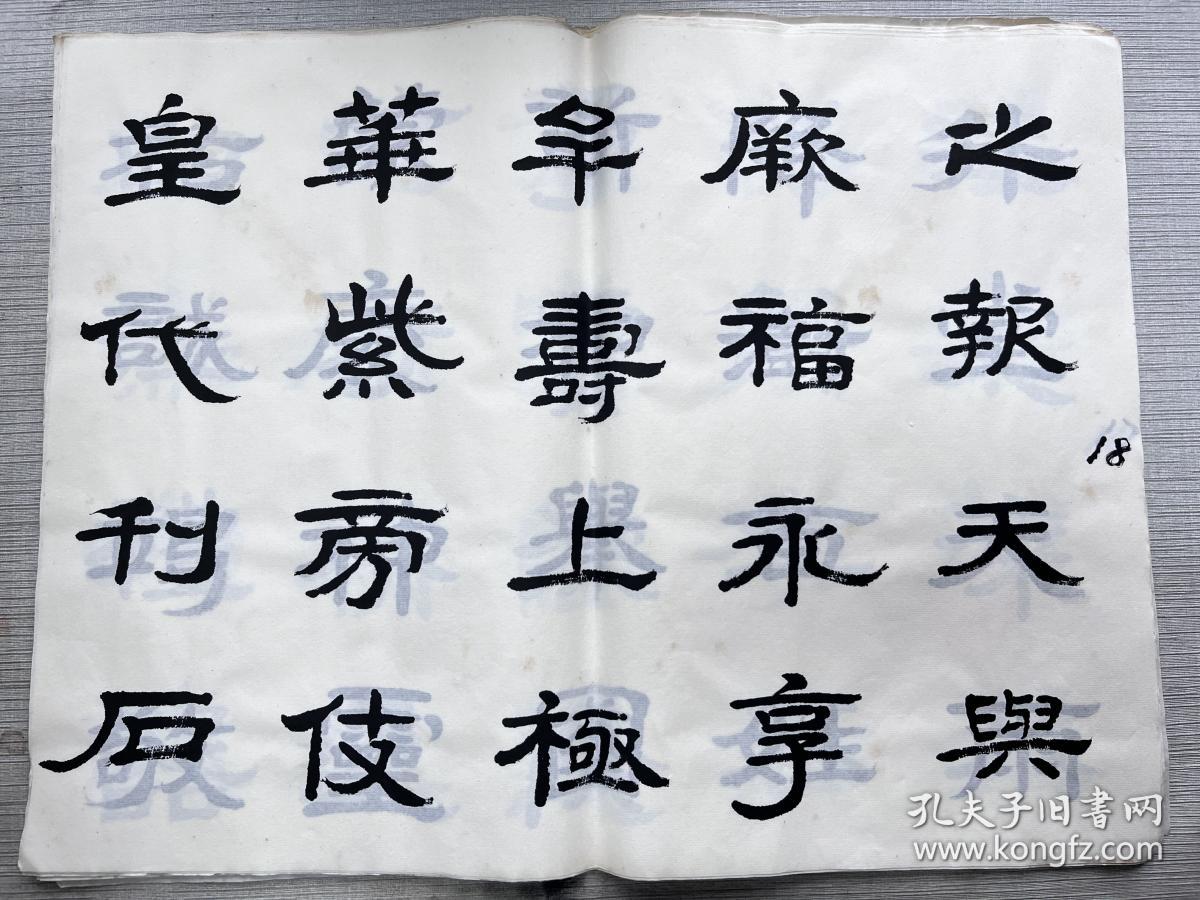 之報天與
厥福永享
牟壽上極
華紫旁伎
皇代刊石
18
孔夫子旧书网
www.kongfz.com